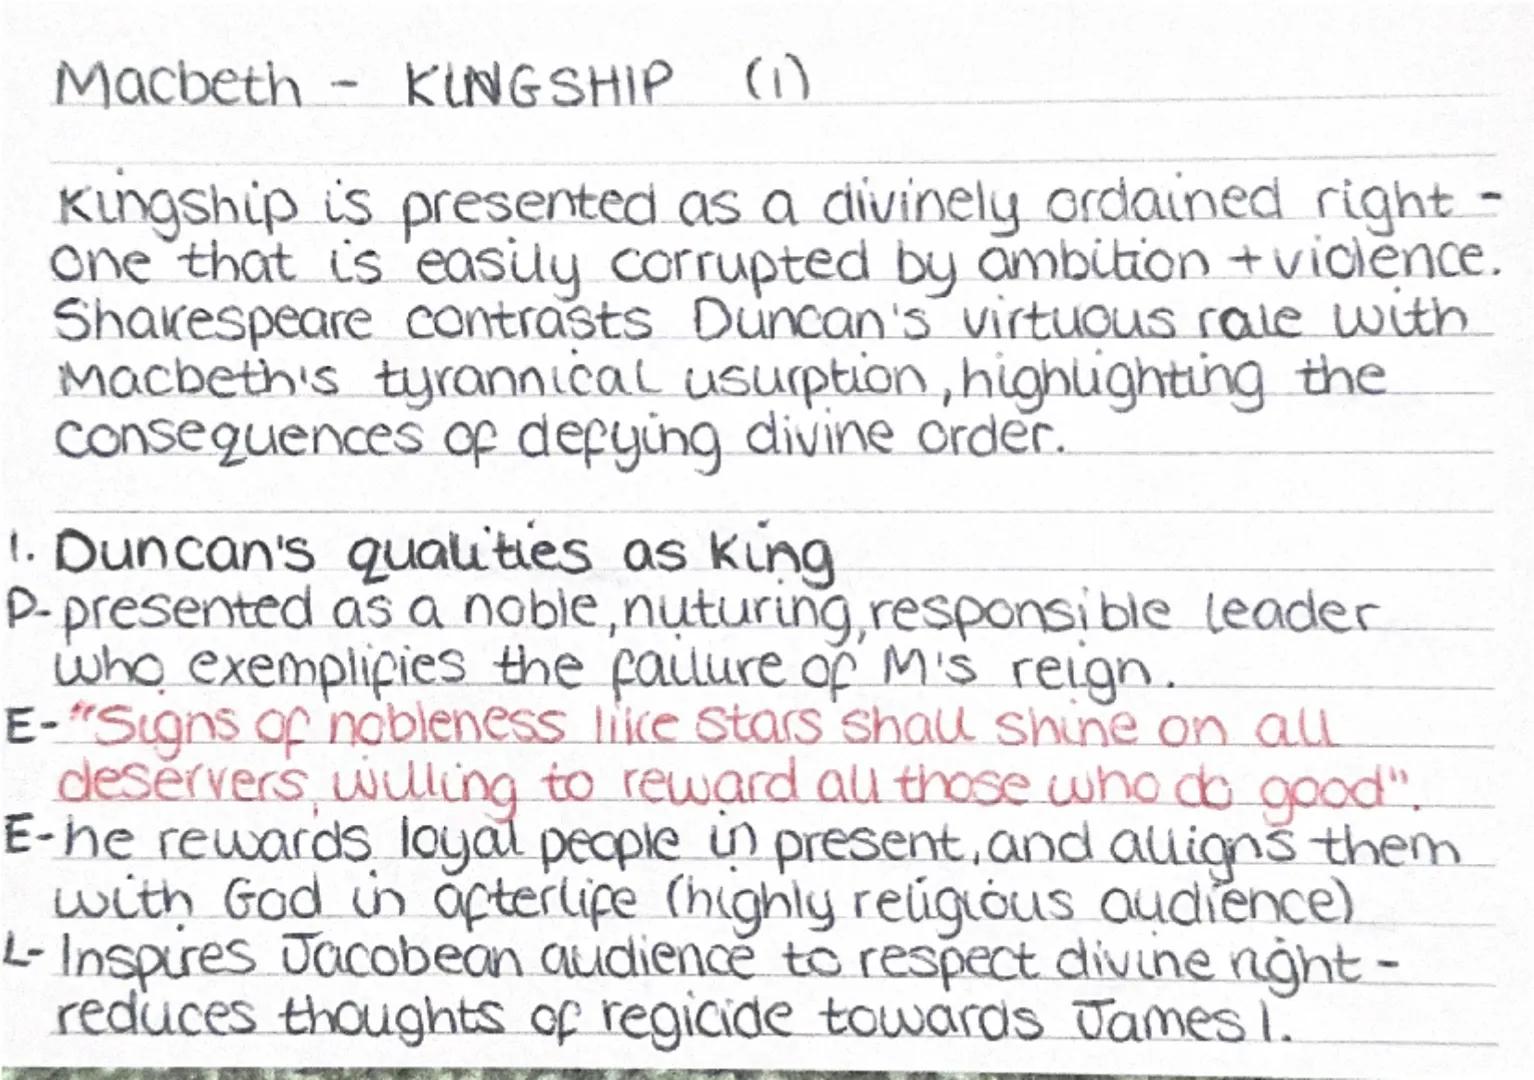 Macbeth - KINGSHIP (1)
Kingship is presented as a divinely ordained right -
one that is easily corrupted by ambition + violence.
Shakespeare contrasts Duncan's virtuous rule with
Macbeth's tyrannical usurption, highlighting the
consequences of defying divine order.
1. Duncan's qualities as king
P- presented as a noble, nuturing, responsible leader
who exemplifies the failure of M's reign.
E- "Signs of nobleness like stars shall shine on all
deservers, willing to reward all those who do good".
E- he rewards loyal people in present, and alligns them
with God in afterlife (highly religious audience)
L- Inspires Jacobean audience to respect divine right -
reduces thoughts of regicide towards James I.